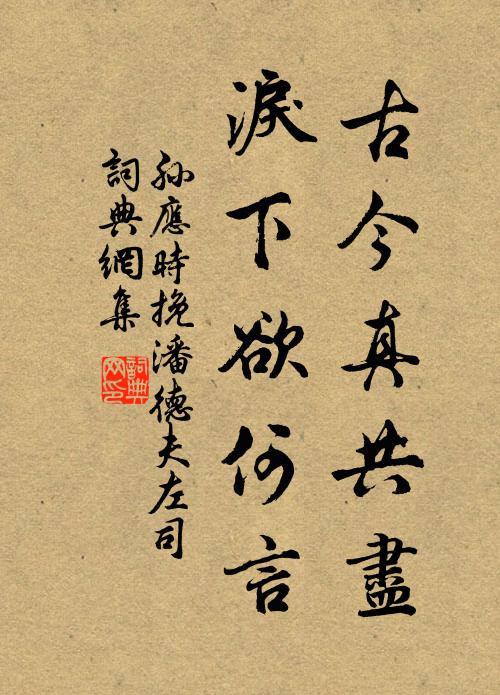 古今真共盡
淚下欲何言
孫應時挽潘德夫左司
詞典網集
詞典网印